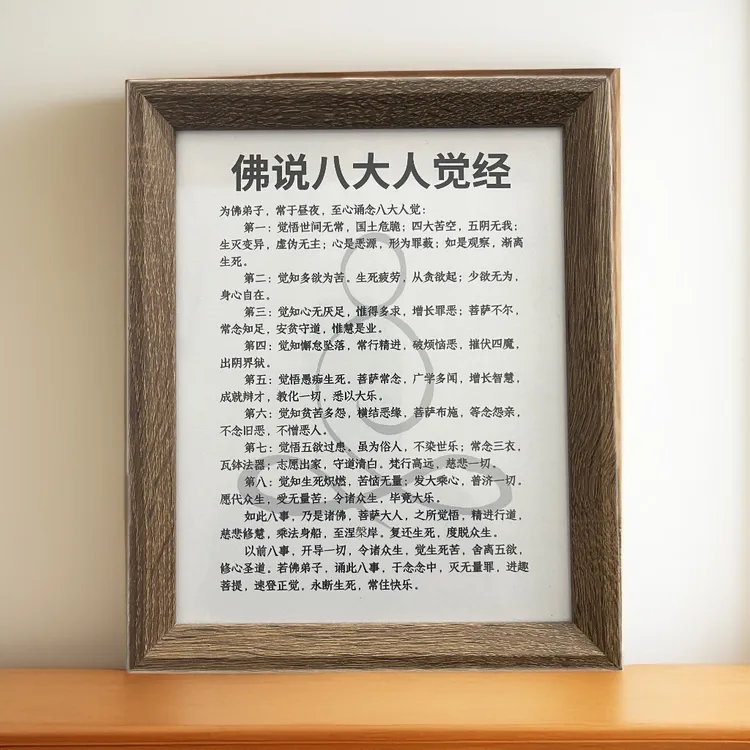 佛说八大人觉经
为佛弟子，常于昼夜，至心诵念八大人觉：
第一：觉悟世间无常，国土危脆；四大苦空，五阴无我；
生灭变异，虚伪无主；心是恶源，形为罪薮；如是观察，渐离
生死。
第二：觉知多欲为苦。生死疲劳，从贪欲起；少欲无为，
身心自在。
第三：觉知心无厌足，惟得多求，增长罪恶；菩萨不尔，
常念知足，安贫守道，惟慧是业。
第四：觉知懈怠坠落，常行精进，破烦恼恶，摧伏四魔，
出阴界狱。
第五：觉悟愚痴生死。菩萨常念，广学多闻，增长智慧，
成就辩才，教化一切，悉以大乐。
第六：觉知贫苦多怨，横结恶缘，菩萨布施，等念怨亲，
不念旧恶，不憎恶人。
第七：觉悟五欲过患。虽为俗人，不染世乐；常念三衣，
瓦钵法器；志愿出家，守道清白。梵行高远，慈悲一切。
第八：觉知生死炽燃，苦恼无量；发大乘心，普济一切。
愿代众生，受无量苦；令诸众生，毕竟大乐。
如此八事，乃是诸佛，菩萨大人，之所觉悟，精进行道，
慈悲修慧，乘法身船，至涅槃岸，复还生死，度脱众生。
以前八事，开导一切，令诸众生，觉生死苦，舍离五欲，
修心圣道。若佛弟子，诵此八事，于念念中，灭无量罪，进趣
菩提，速登正觉，永断生死，常住快乐。